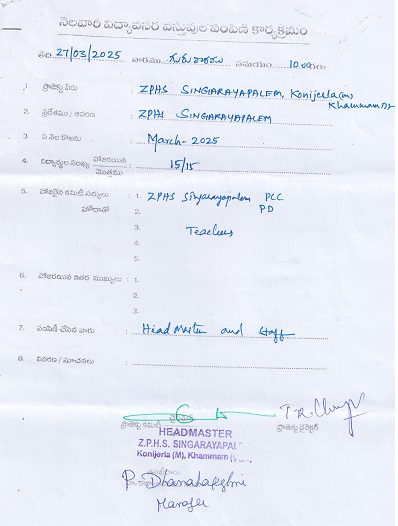 నెలవారి విద్యావసర వస్తువుల పంపిణి కార్యక్రమం
తేది 27/03/2025 వారము గురువారము సమయం 10.00గం
1. ప్రాజెక్టు పేరు : ZPHS SINGIARAYAPALEM, Konijerla(m)
Khammam Dt
2. ప్రదేశము / ఆవరణ : ZPHS SINGIARAYAPALEM
3. ఏ నెల కొరకు : March-2025
4. విద్యార్థుల సంఖ్య హాజరయిన / మొత్తము : 15/15
5. హాజరైన కమిటీ సభ్యులు : 1. ZPHS Singarayapalem PCC
హోదాతో 2. PD
3. Teachers
4.
5.
6. హాజరయిన ఇతర ముఖ్యులు : 1.
2.
3.
7. పంపిణీ చేసిన వారు : Head Master and staff
8. వివరణ / సూచనలు :
ప్రాజెక్టు కమిటీ ప్రాజెక్టు డైరెక్టర్
HEADMASTER
Z.P.H.S. SINGARAYAPAL
Konijerla (M), Khammam
P. Dhanalakshmi
Manager